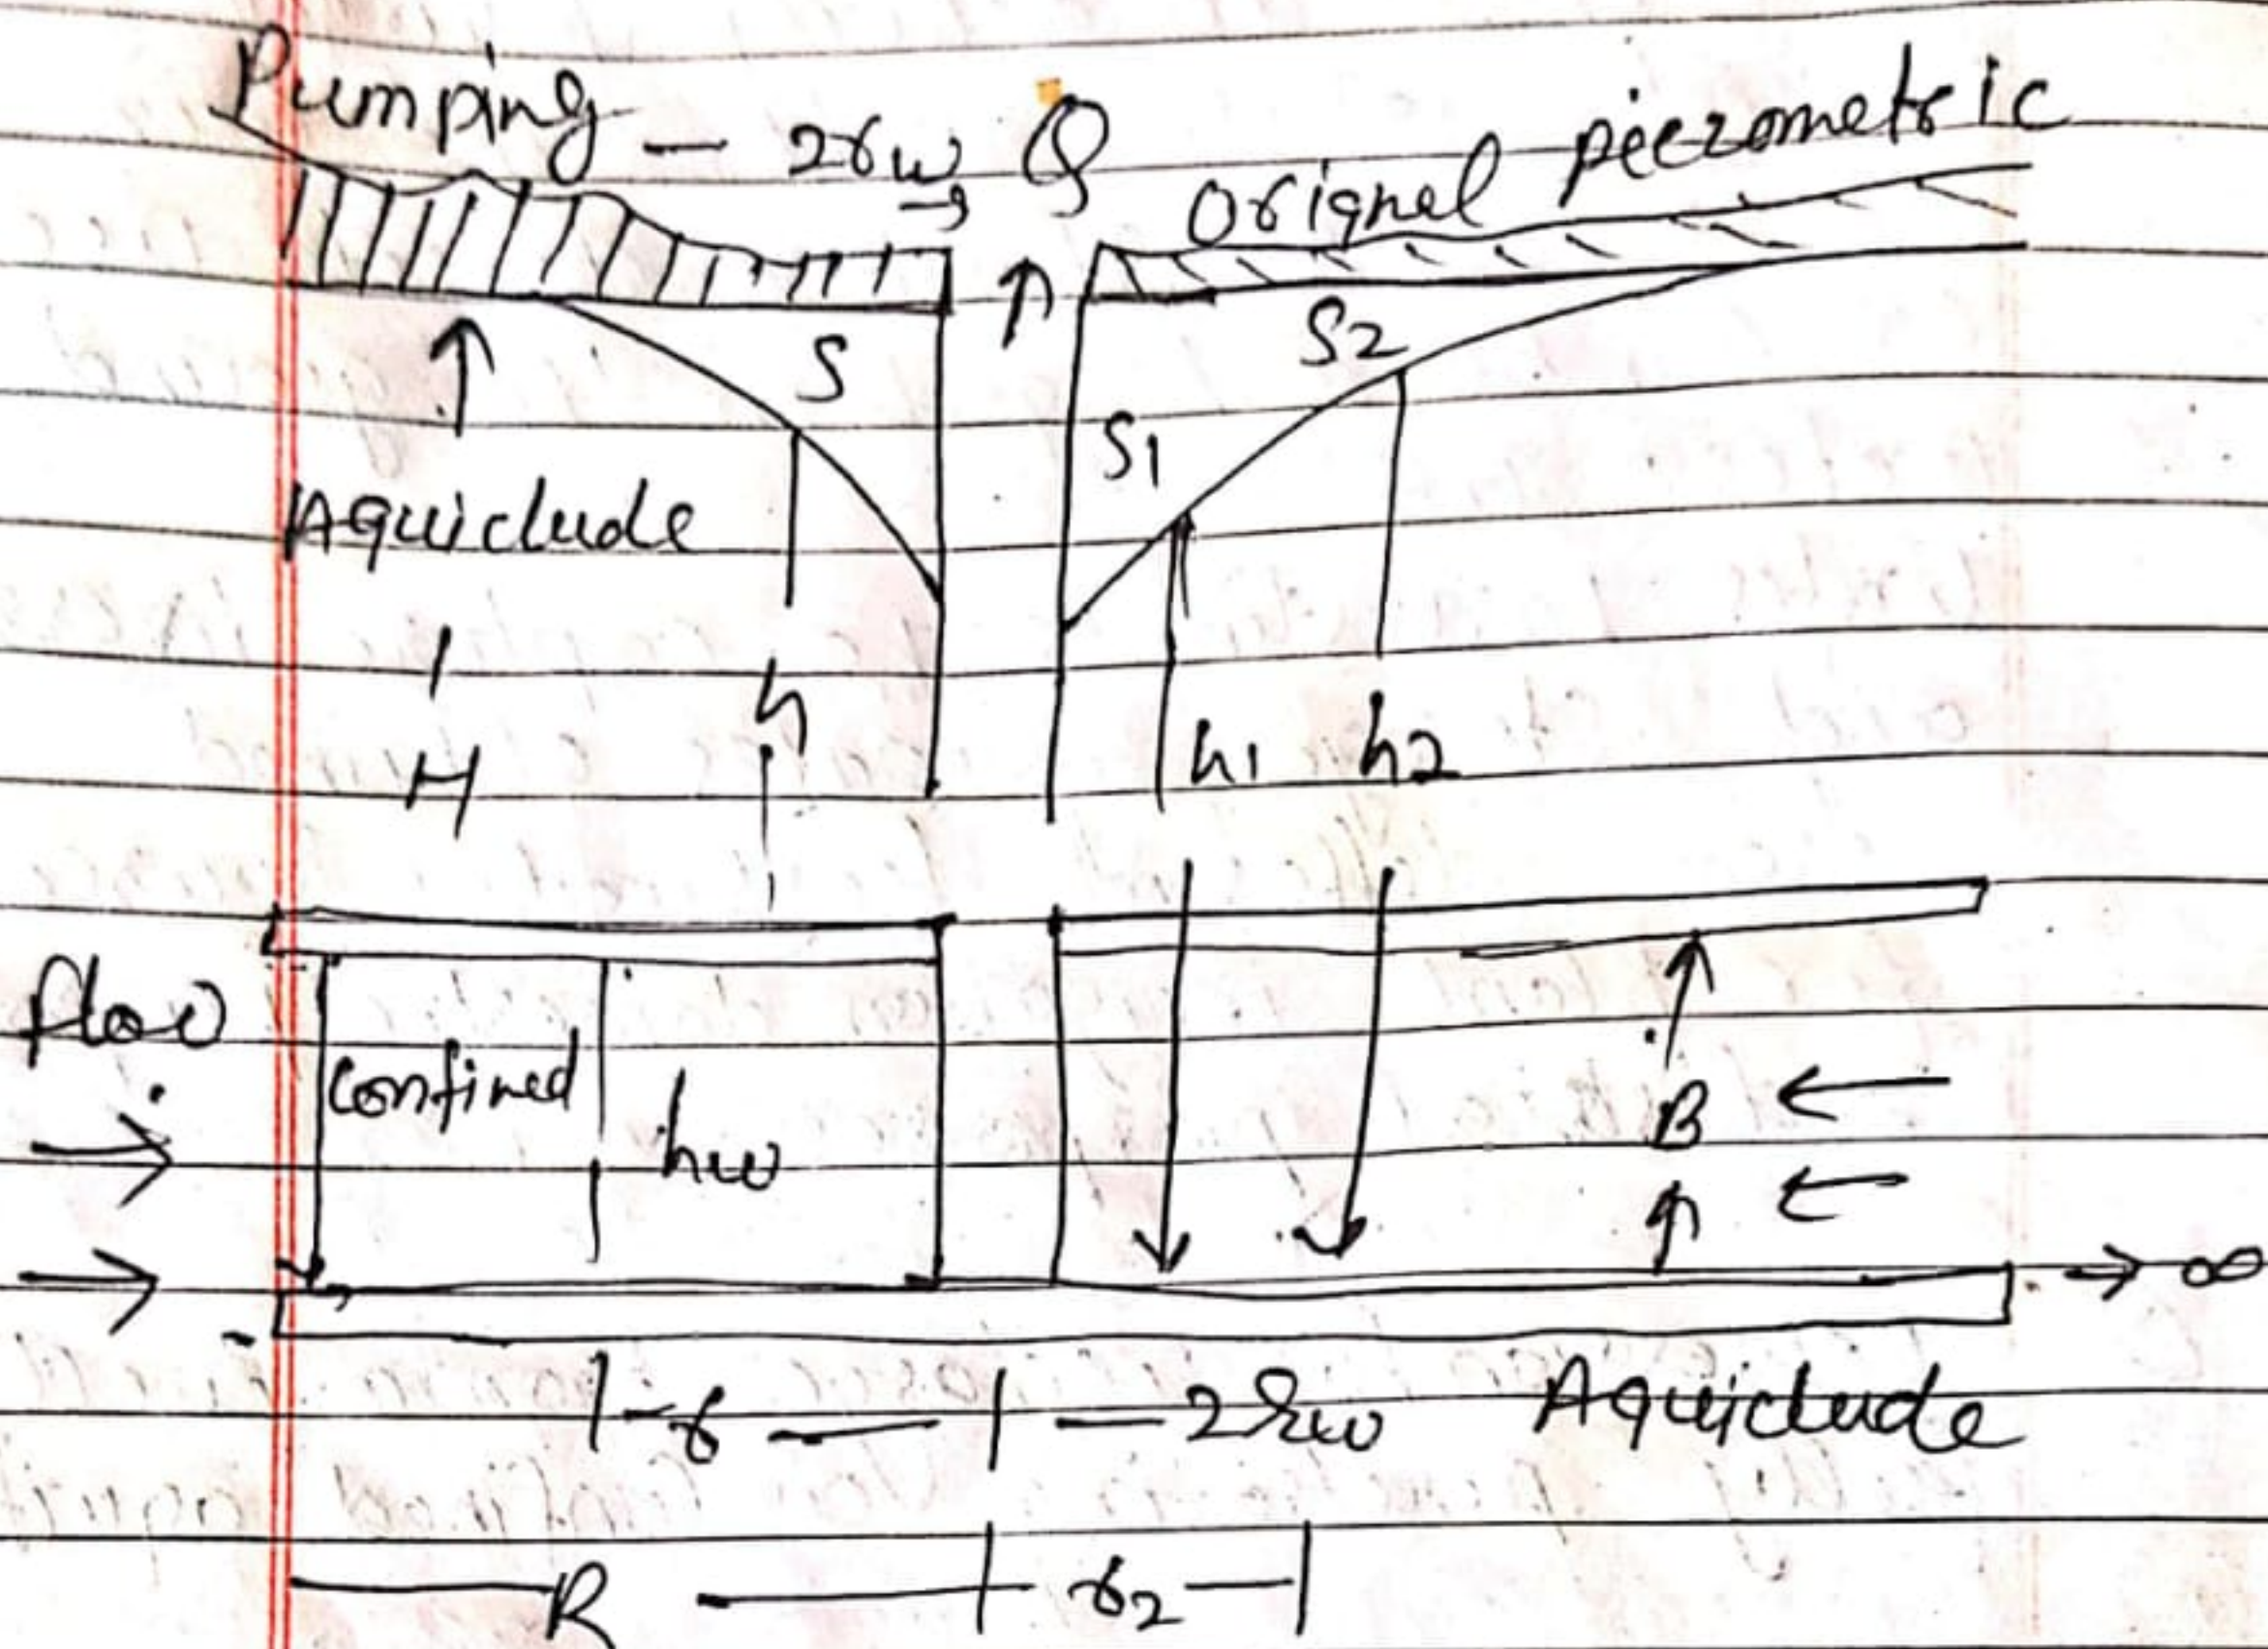 Pumping - 2rw → Q
Orignel piezometric
S
S2
S1
Aquiclude
H
h
h1
h2
flow
Confined
hw
B
→ ∞
r
2rw
Aquiclude
R
r2